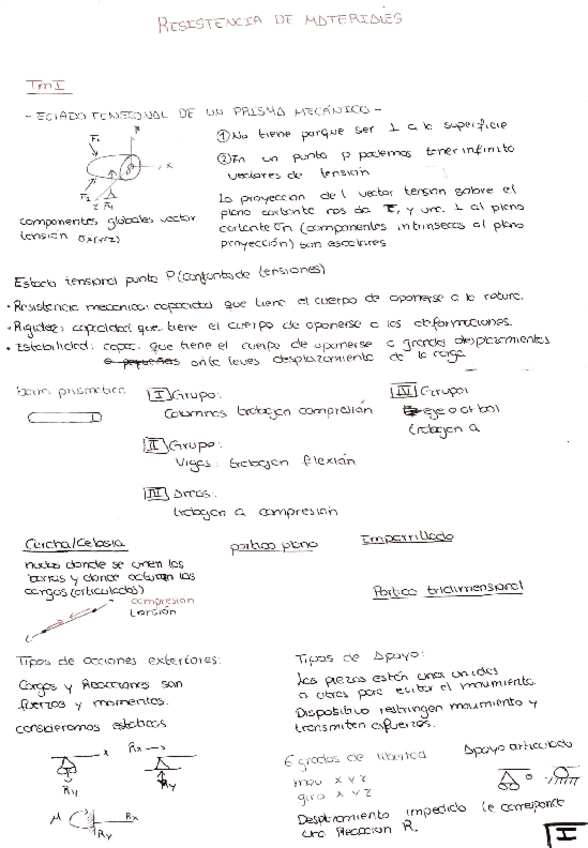 RESISTENCIA DE MATERIALES
Tm I
- ESTADO TENSIONAL DE UN PRISMA MECÁNICO -
① No tiene porque ser ⊥ a la superficie
② En un punto p podemos tener infinito
vectores de tensión
La proyección del vector tensión sobre el
plano cortante nos da τ, y una ⊥ al plano
cortante σn (componentes intrínsecas al plano
proyección) son escalares
componentes globales vector
tensión σx(y/z)
Estado tensional punto P (conjunto de tensiones)
· Resistencia mecánica: capacidad que tiene el cuerpo de oponerse a la rotura.
· Rigidez: capacidad que tiene el cuerpo de oponerse a las deformaciones.
· Estabilidad: capac. que tiene el cuerpo de oponerse a grandes desplazamientos
o pequeñas ante leves desplazamiento de la carga
barra prismática
I Grupo:
Columnas trabajan compresión
II Grupo:
Vigas: trabajan flexión
III Arcos:
trabajan a compresión
IV Grupo:
eje o árbol
trabajan a
Cercha/Celosía
nudos donde se unen las
barras y donde actúan las
cargas (articulados)
compresión
tensión
pórtico plano
Emparrillado
Pórtico tridimensional
Tipos de acciones exteriores:
Cargas y Reacciones son
fuerzas y momentos.
consideramos estáticas
x
Rx
Ry
Ry
M
Rx
Ry
Tipos de Apoyo:
Las piezas están unas unidas
a otras para evitar el movimiento.
Dispositivo restringen movimiento y
transmiten esfuerzos.
6 grados de libertad
mov x y z
giro x y z
Apoyo articulado
Desplazamiento impedido le corresponde
una Reacción R.
I